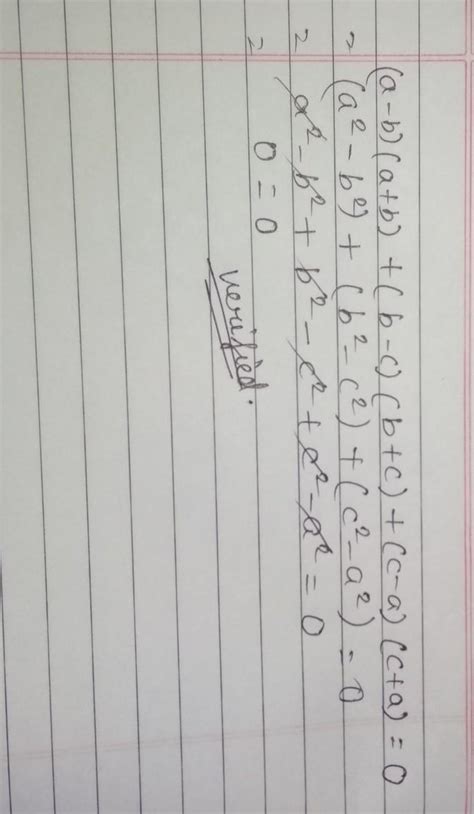 (a-b)(a+b) + (b-c)(b+c) + (c-a)(c+a) = 0
= (a² - b²) + (b² - c²) + (c² - a²) = 0
= a² - b² + b² - c² + c² - a² = 0
= 0 = 0
verified.